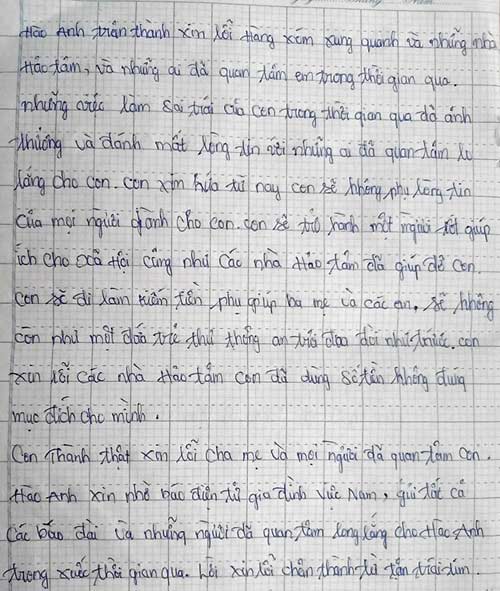 Hào Anh trân thành xin lỗi hàng xóm xung quanh và những nhà
Hảo tâm, và những ai đã quan tâm em trong thời gian qua.
những việc làm sai trái của con trong thời gian qua đã ảnh
thưởng và đánh mất lòng tin với những ai đã quan tâm lo
lắng cho con. con xin hứa từ nay con sẽ không phụ lòng tin
của mọi người dành cho con. con sẽ trở hành một người tốt giúp
ích cho xã Hội cũng như các nhà Hảo tâm đã giúp đỡ con.
con sẽ đi làm kiếm tiền phụ giúp ba mẹ và các an, sẽ không
còn như một đứa trước thứ thống an trôi đạo đời như trước. con
xin lỗi các nhà Hảo tâm con đã dùng số tiền không đúng
mục đích cho mình.
Con Thành thật xin lỗi cha mẹ và mọi người đã quan tâm con.
Hào Anh xin nhờ báo điện tử gia đình Việt Nam, gửi tất cả
các báo đài và những người đã quan tâm long lắng cho Hào Anh
trong xuốc thời gian qua. lời xin lỗi chân thành từ tận trái tim.